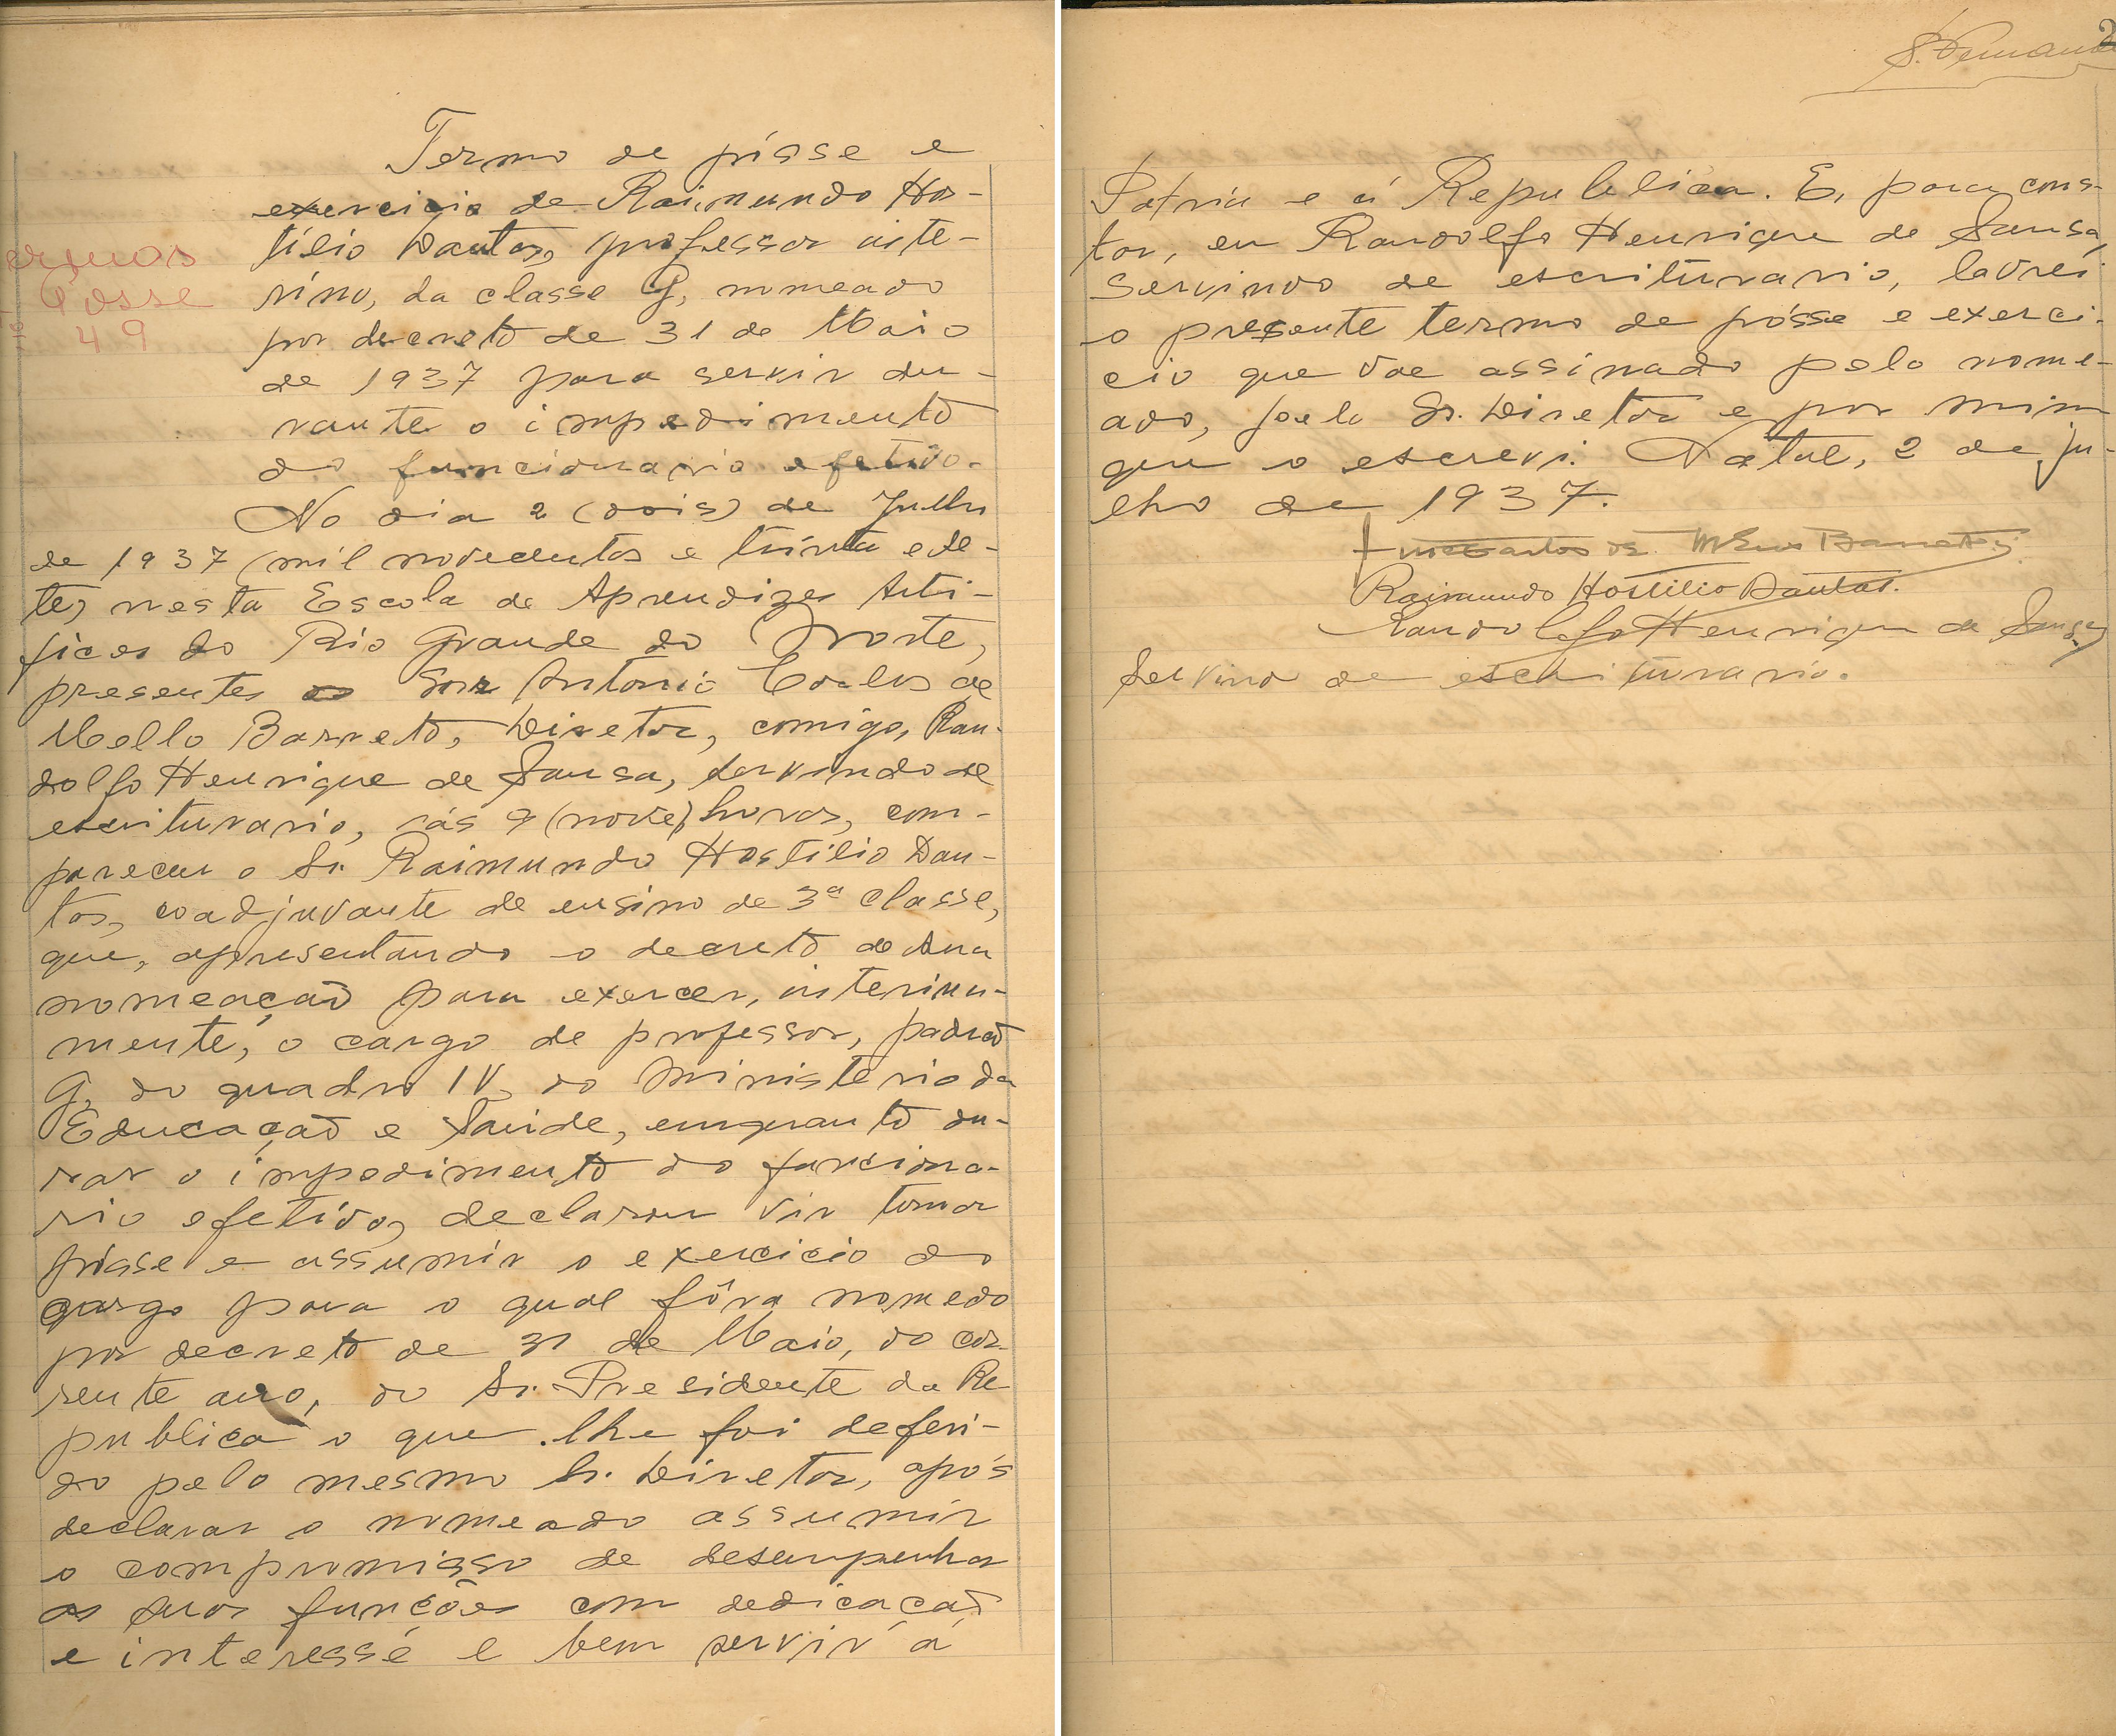 Termo de pósse e
exercicio de Raimundo Hos-
tilio Dantas, professor inte-
rino, da classe G, nomeado
por decreto de 31 de Maio
de 1937 para servir du-
rante o impedimento
do funcionario efetivo.
Posse
49
No dia 2 (dois) de Julho
de 1937 (mil novecentos e trinta e se-
te) nesta Escola de Aprendizes Arti-
fices do Rio Grande do Norte,
presentes os Snr Antonio Carlos de
Mello Barreto, Diretor, comigo, Ran-
dolfo Henrique de Sausa, servindo de
escriturario, ás 9 (nove) horas, com-
pareceu o Sr. Raimundo Hostilio Dan-
tas, coadjuvante de ensino de 3ª classe,
que, apresentando o decreto de sua
nomeação para exercer, interina-
mente, o cargo de professor, padrão
G, do quadro IV do Ministerio da
Educação e Saúde, emquanto du-
rar o impedimento do funciona-
rio efetivo, declarou vir tomar
pósse e assumir o exercicio do
cargo para o qual fôra nomedo
por decreto de 31 de Maio, do cor-
rente ano, do Sr. Presidente da Re
publica o que lhe foi deferi-
do pelo mesmo Sr. Diretor, após
declarar o nomeado assumir
o compromisso de desempenhar
as suas funções com dedicação
e interesse e bem servir á
2
Patria e á Republica. E, para cons-
tar, eu Randolfo Henrique de Sausa,
servindo de escriturario, lavrei
o presente termo de pósse e exerci-
cio que vae assinado pelo nome-
ado, pelo Sr. Diretor e por mim
que o escrevi. Natal, 2 de ju-
lho de 1937.
Carlos de Mello Barretto
Raimundo Hostilio Dantas.
Randolfo Henrique de Sausa
Servindo de escriturario.